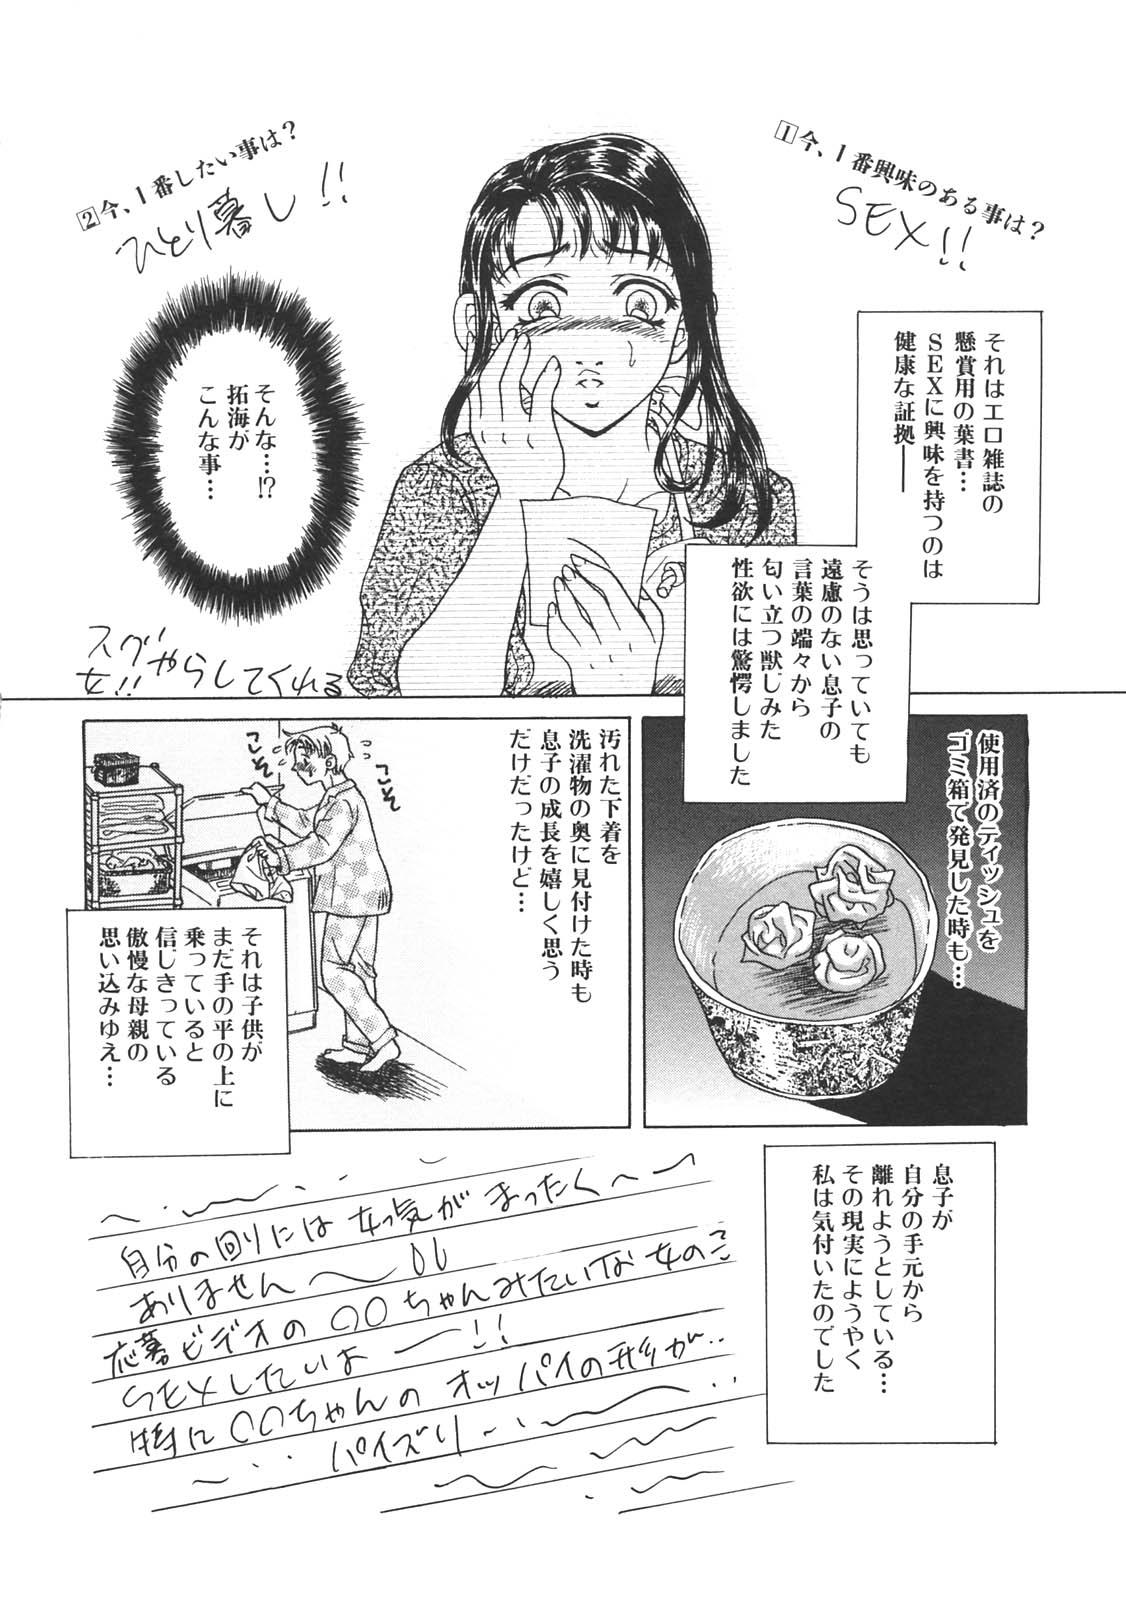 1今、1番興味のある事は？
SEX!!
2今、1番したい事は？
ひとり暮し!!
それはエロ雑誌の
懸賞用の葉書…
SEXに興味を持つのは
健康な証拠――
そんな…⁉
拓海が
こんな事…
そうは思っていても
遠慮のない息子の
言葉の端々から
匂い立つ獣じみた
性欲には驚愕しました
スグやらしてくれる
女!!
使用済のティッシュを
ゴミ箱で発見した時も…
汚れた下着を
洗濯物の奥に見付けた時も
息子の成長を嬉しく思う
だけだったけど…
こそ
こそ
それは子供が
まだ手の平の上に
乗っていると
信じきっている
傲慢な母親の
思い込みゆえ…
息子が
自分の手元から
離れようとしている…
その現実にようやく
私は気付いたのでした
自分の回りには女っ気がまったく
ありません
応募ビデオの〇〇ちゃんみたいな女のこ
SEXしたいよー!!
特に〇〇ちゃんのオッパイの形が‥
パイズリ